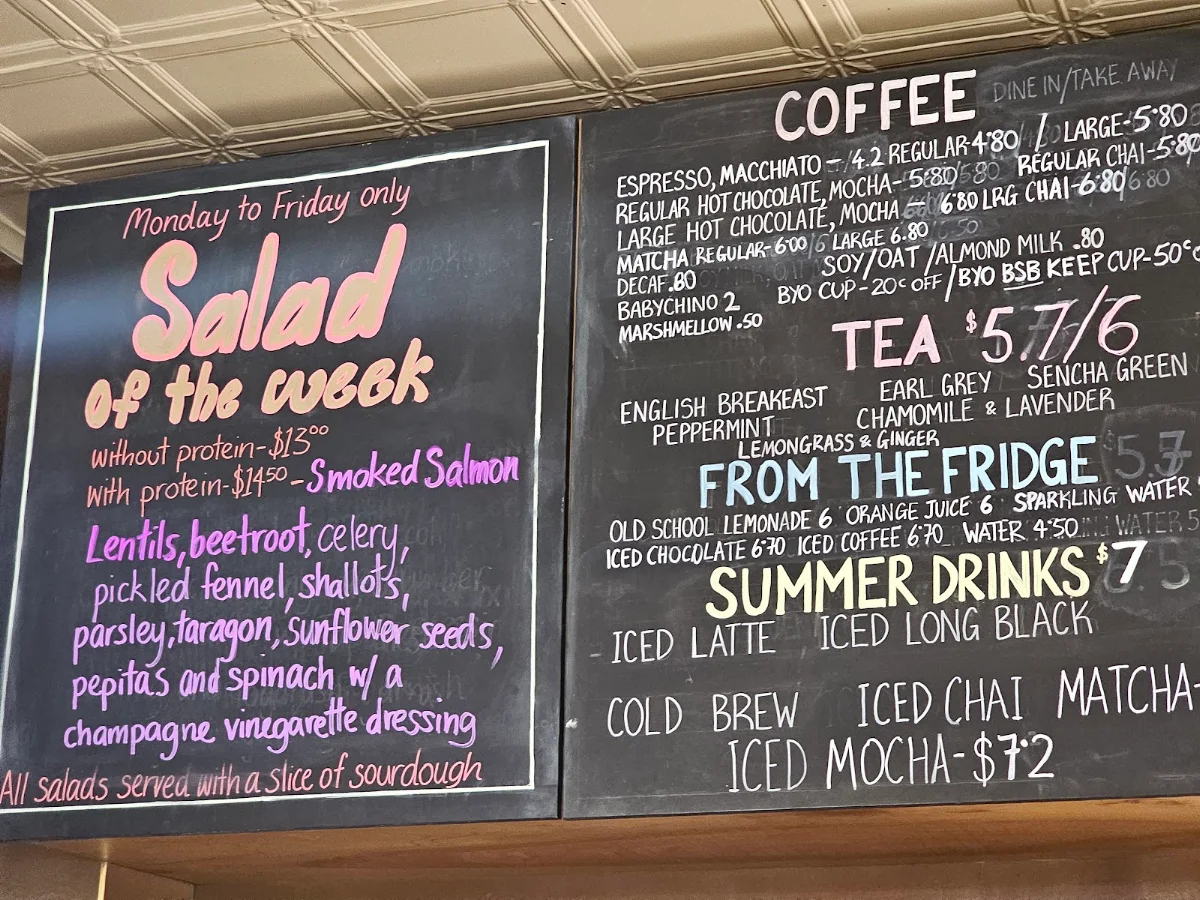 Monday to Friday only
Salad
of the week
without protein-$13⁰⁰
with protein-$14⁵⁰-Smoked Salmon
Lentils, beetroot, celery,
pickled fennel, shallots,
parsley, taragon, sunflower seeds,
pepitas and spinach w/ a
champagne vinegarette dressing
All salads served with a slice of sourdough
COFFEE DINE IN/TAKE AWAY
ESPRESSO, MACCHIATO - 4.2 REGULAR-4·80 / LARGE-5·80
REGULAR HOT CHOCOLATE, MOCHA-5·80 REGULAR CHAI-5·80
LARGE HOT CHOCOLATE, MOCHA - 6·80 LRG CHAI-6·80
MATCHA REGULAR-6·00 LARGE 6.80
DECAF .80 SOY/OAT/ALMOND MILK .80
BABYCHINO 2 BYO CUP-20c OFF/BYO BSB KEEP CUP-50c
MARSHMELLOW .50
TEA $5.7/6
ENGLISH BREAKEAST EARL GREY SENCHA GREEN
PEPPERMINT CHAMOMILE & LAVENDER
LEMONGRASS & GINGER
FROM THE FRIDGE 5.7
OLD SCHOOL LEMONADE 6 ORANGE JUICE 6 SPARKLING WATER
ICED CHOCOLATE 6·70 ICED COFFEE 6·70 WATER 4·50
SUMMER DRINKS $7
ICED LATTE ICED LONG BLACK
COLD BREW ICED CHAI MATCHA-
ICED MOCHA-$7·2